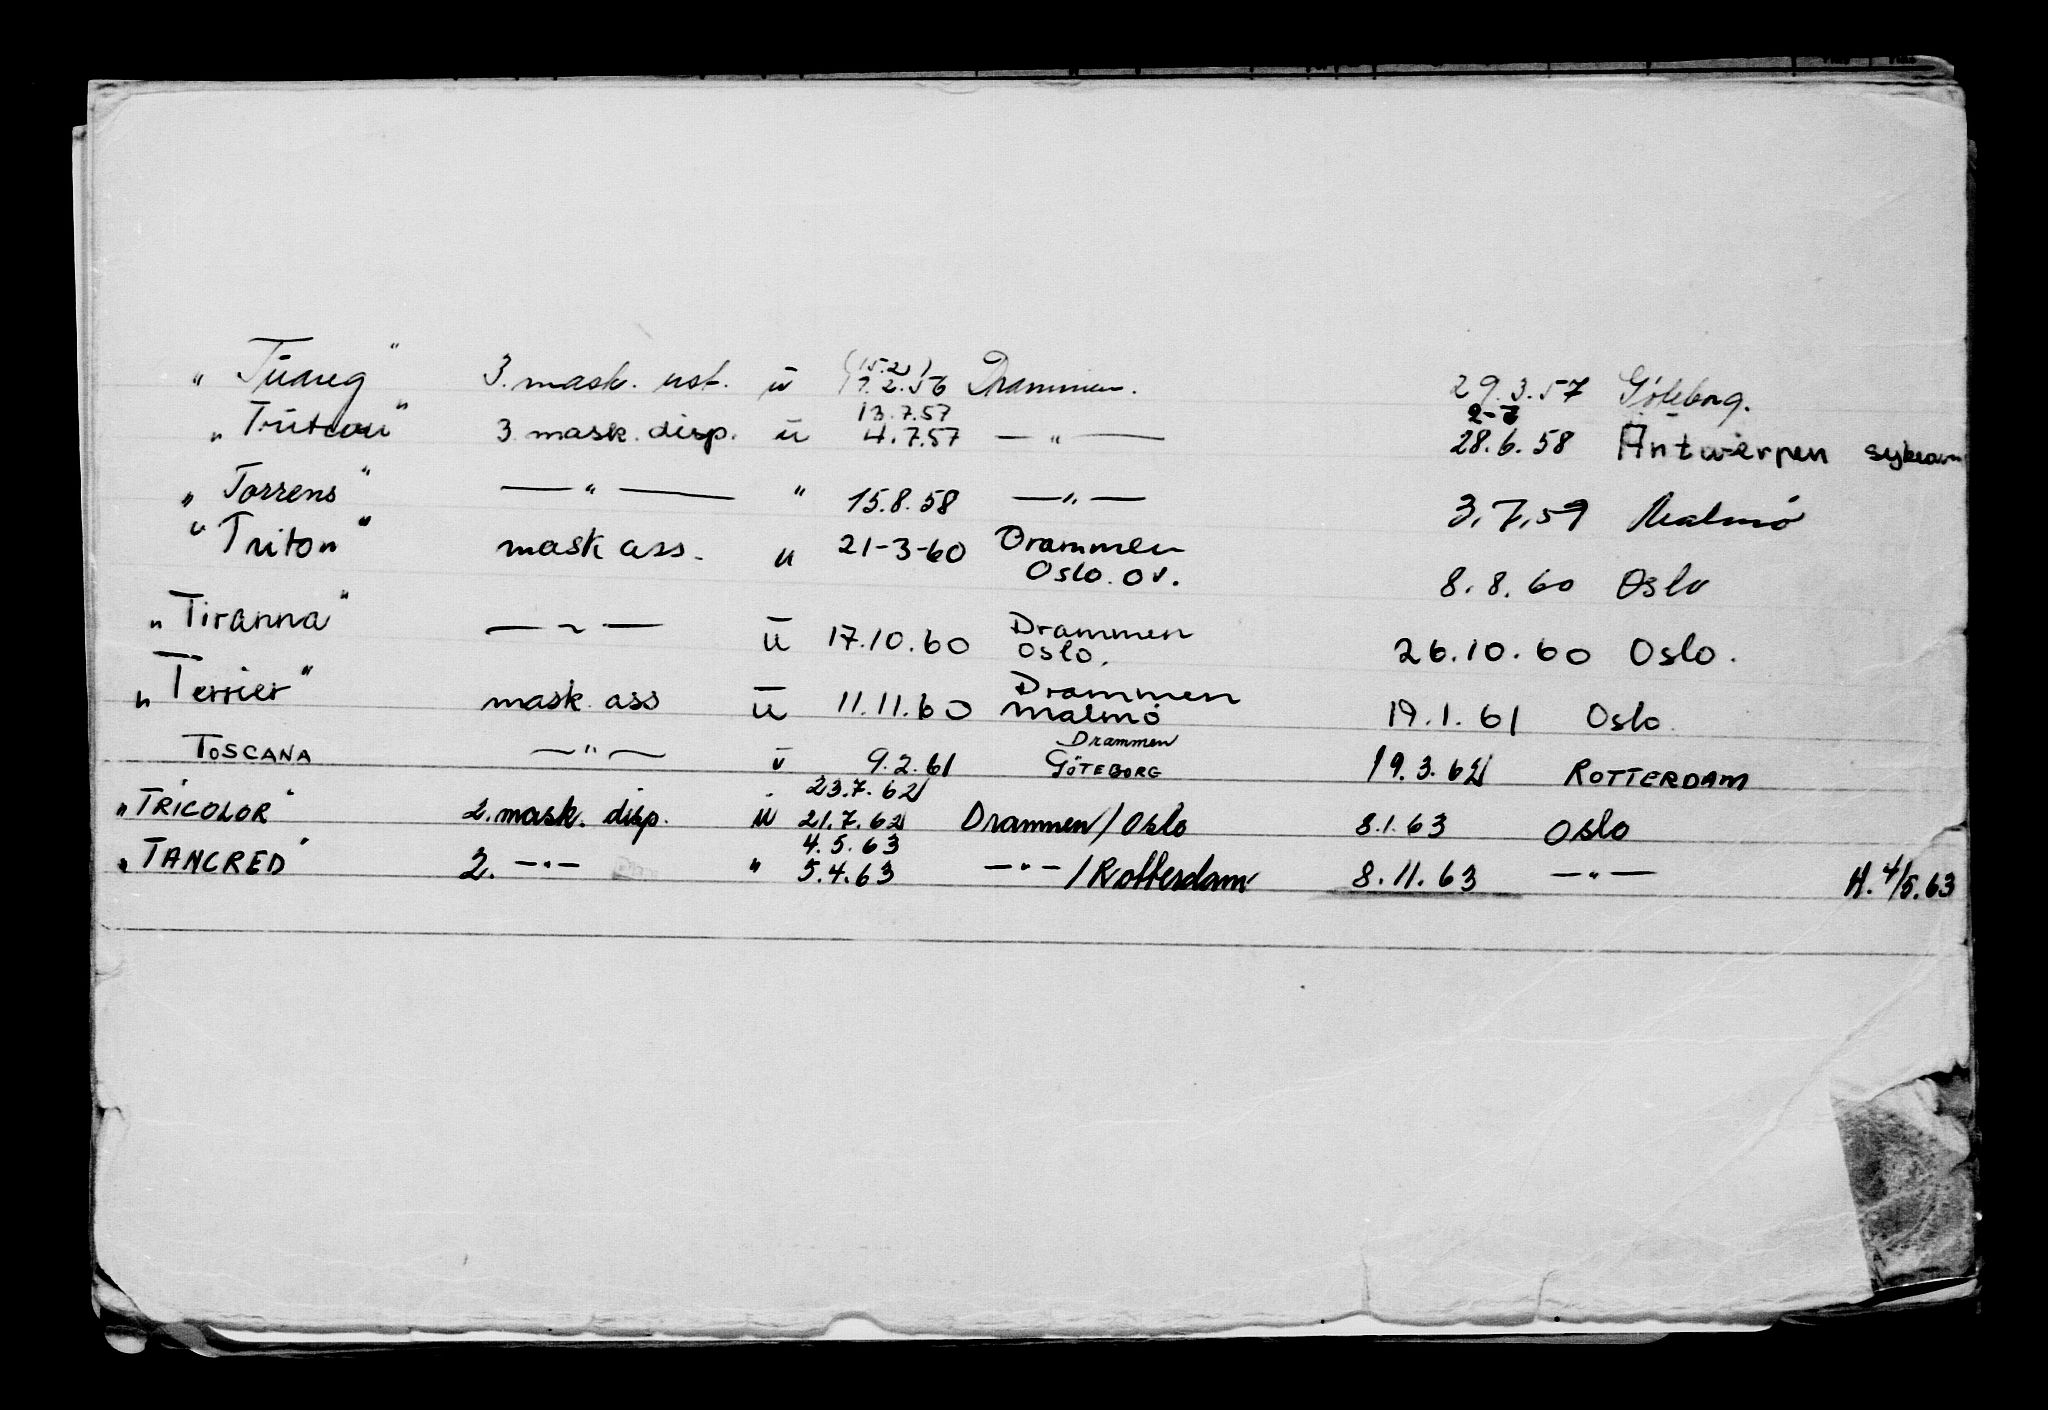 „ Tuareg " 3. mask. ust. u (15.2) 1.2.56 Drammen. 29.3.57 Göteborg.
13.7.57 2-7
„ 3 mask. disp. u 4.7.57 — " — 28.6.58 Antwerpen
„ Torrens " — " — " 15.8.58 — " — 3.7.59 Malmö
" Triton " mask ass. u 21-3-60 Drammen
Oslo. ov. 8.8.60 Oslo
„ Tiranna " — " — u 17.10.60 Drammen
Oslo. 26.10.60 Oslo.
„ Terrier " mask. ass u 11.11.60 Drammen
Malmö 19.1.61 Oslo.
Drammen
TOSCANA — " — u 9.2.61 GÖTEBORG 19.3.62 ROTTERDAM
23.7.62
„ TRICOLOR " 2. mask. disp. u 21.7.62 Drammen/Oslo 8.1.63 Oslo
4.5.63
„ TANCRED " 2. — " — " 5.4.63 — " — / Rotterdam 8.11.63 — " — H. 4/5.63